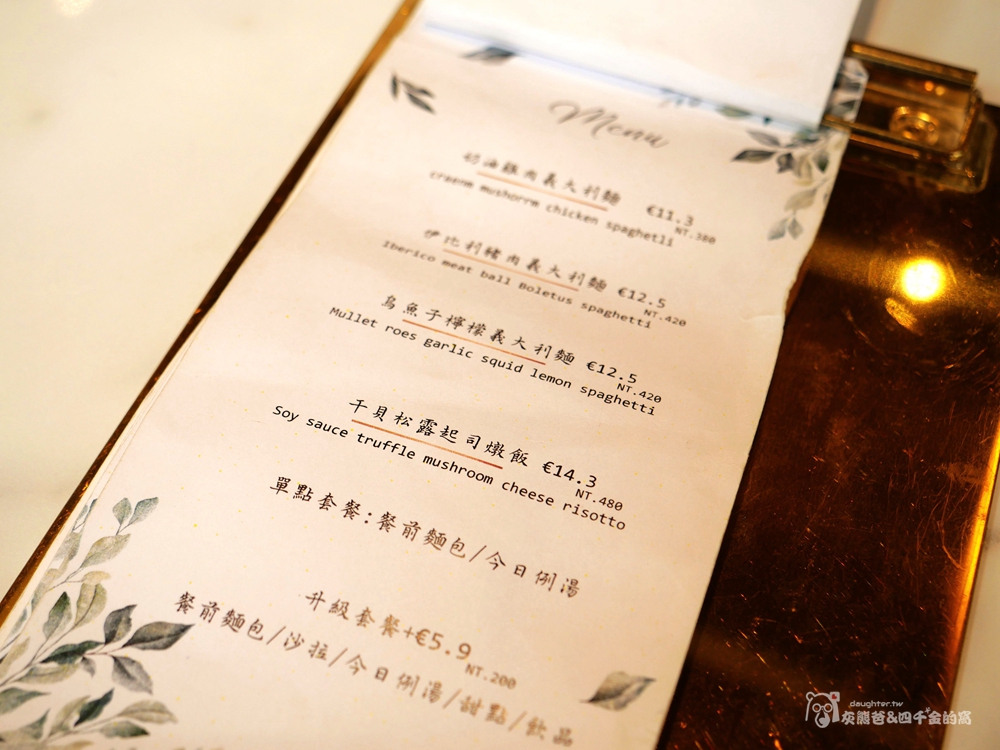 Menu
奶油雞肉義大利麵 €11.3
NT.380
creamm mushorrm chicken spaghetli
伊比利豬肉義大利麵 €12.5
NT.420
Iberico meat ball Boletus spaghetti
烏魚子檸檬義大利麵 €12.5
NT.420
Mullet roes garlic squid lemon spaghetti
干貝松露起司燉飯 €14.3
NT.480
Soy sauce truffle mushroom cheese risotto
單點套餐:餐前麵包/今日例湯
升級套餐+€5.9
NT.200
餐前麵包/沙拉/今日例湯/甜點/飲品
daughter.tw
灰熊爸&四千金的窩